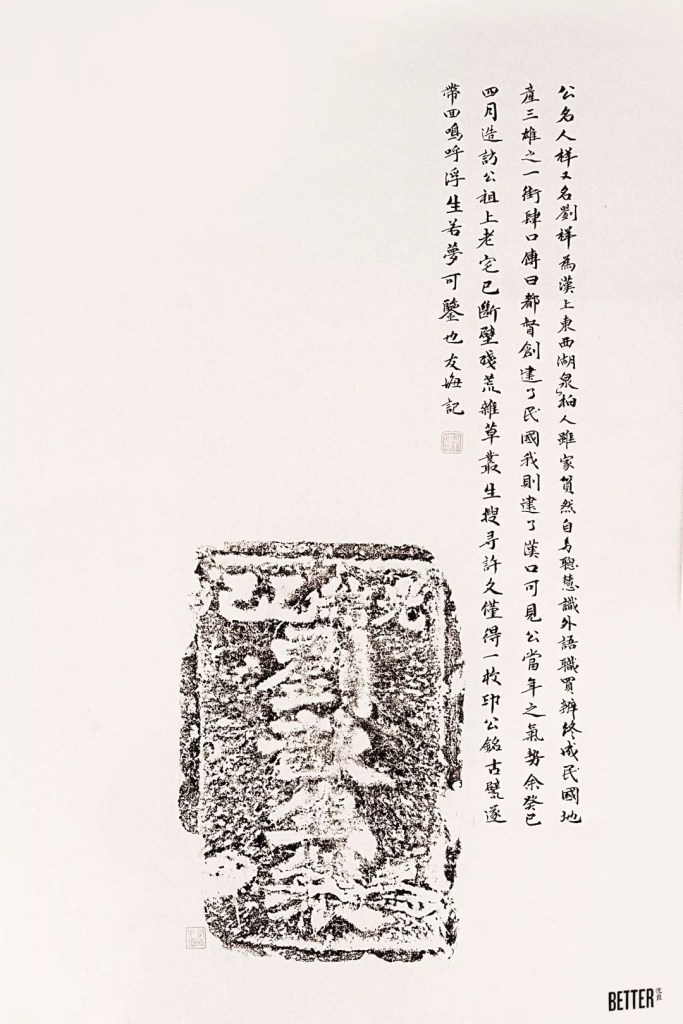 公名人祥又名劉祥為漢上東西湖泉柏人雖家貧然自聰慧識外語職買辦終成民國地
產三雄之一街肆口傳曰都督創建了民國我則建了漢口可見公當年之氣勢余癸巳
四月造訪公祖上老宅已斷壁殘荒雜草叢生搜尋許久僅得一枚印公銘古甓遂
帶回鳴呼浮生若夢可鑒也友海記
光緒乙巳
劉歆生
BETTER